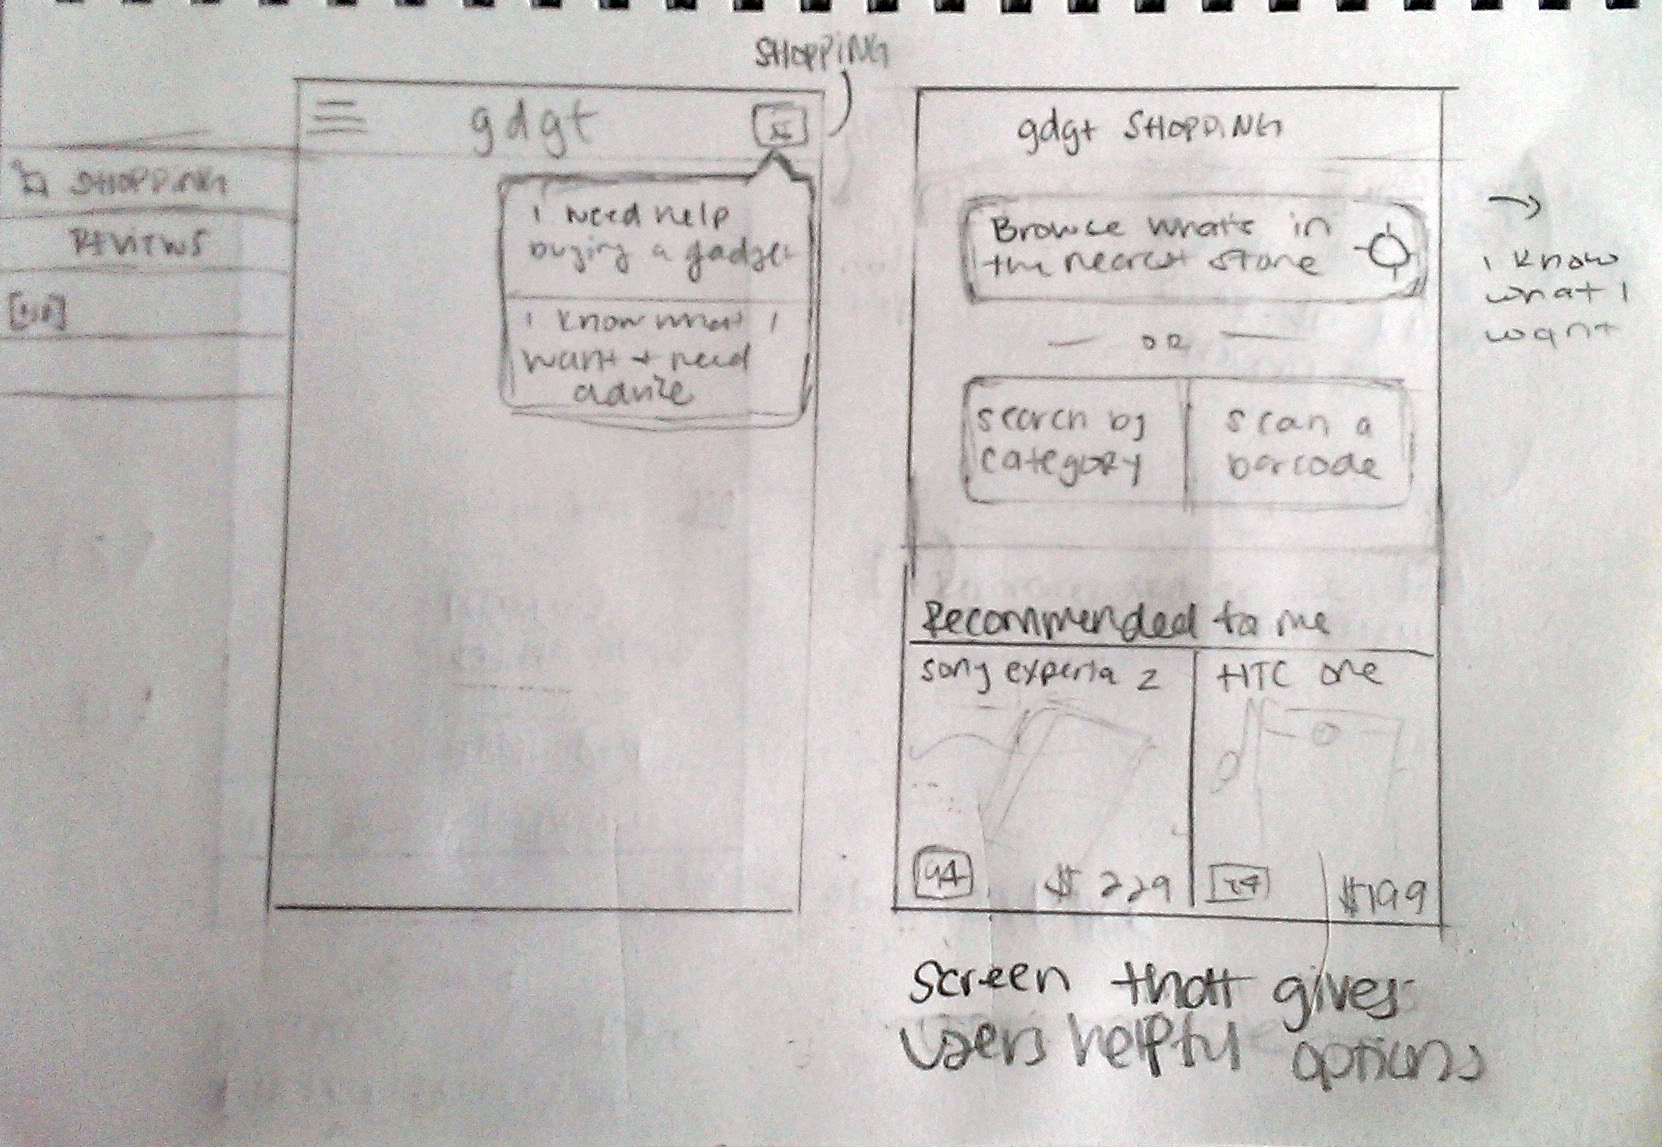 SHOPPING
gdgt
SHOPPING
REVIEWS
I need help
buying a gadget
I know what I
want + need
advice
gdgt SHOPPING
Browse what's in
the nearest store
OR
search by
category
scan a
barcode
→
I know
what I
want
Recommended to me
sony experia z
HTC one
94
$229
$199
screen that gives
users helpful options